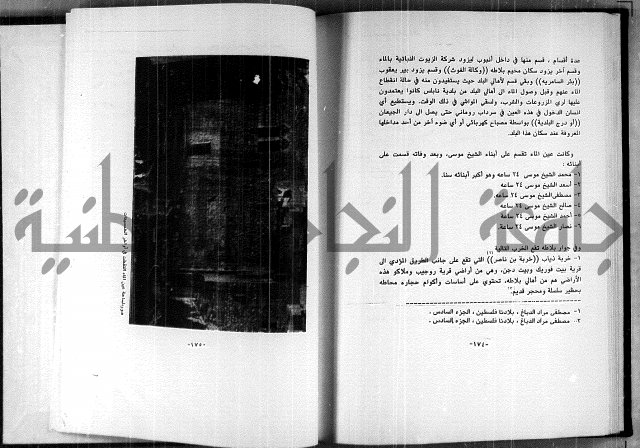 عدة أقسام ، قسم منها في داخل أنبوب ليزود شركة الزيوت النباتية بالماء
وقسم آخر يزود سكان مخيم بلاطه ((وكالة الغوث)) وقسم يزود بير يعقوب
((بئر السامريه)) وبقي قسم لأهالي البلد حيث يستفيدون منه في حالة انقطاع
الماء عنهم وقبل وصول الماء الى أهالي البلد من بلدية نابلس كانوا يعتمدون
عليها لري المزروعات والشرب، ولسقي المواشي في ذلك الوقت. ويستطيع أي
انسان الدخول في هذه العين في سرداب روماني حتى يصل الى دار الجيعان
((أو درج البلدية)) بواسطة مصباح كهربائي أو أي ضوء آخر من أحد مداخلها
المعروفة عند سكان هذا البلد.
وكانت عين الماء تقسم على أبناء الشيخ موسى، وبعد وفاته قسمت على
أبنائه :
١- محمد الشيخ موسى ٢٤ ساعه وهو أكبر أبنائه سنا.
٢- أسعد الشيخ موسى ٢٤ ساعه
٣- مصطفى الشيخ موسى ٢٤ ساعه.
٤- صالح الشيخ موسى ٢٤ ساعه
٥- أحمد الشيخ موسى ٢٤ ساعه
٦- نصار الشيخ موسى ٢٤ ساعه.
وفي جوار بلاطه تقع الخرب التالية
١- خربة ذياب ((خربة بن ناصر)) التي تقع على جانب الطريق المؤدي الى
قرية بيت فوريك وبيت دجن، وهي من أراضي قرية روجيب وملاكو هذه
الأراضي هم من أهالي بلاطه، تحتوي على أساسات وأكوام حجاره محاطه
بحظير سلسلة ومحجر قديم.
١- مصطفى مراد الدباغ ، بلادنا فلسطين ، الجزء السادس .
٢- مصطفى مراد الدباغ ، بلادنا فلسطين، الجزء السادس .
-١٧٤-
-١٧٥-
جامعة النجاح الوطنية